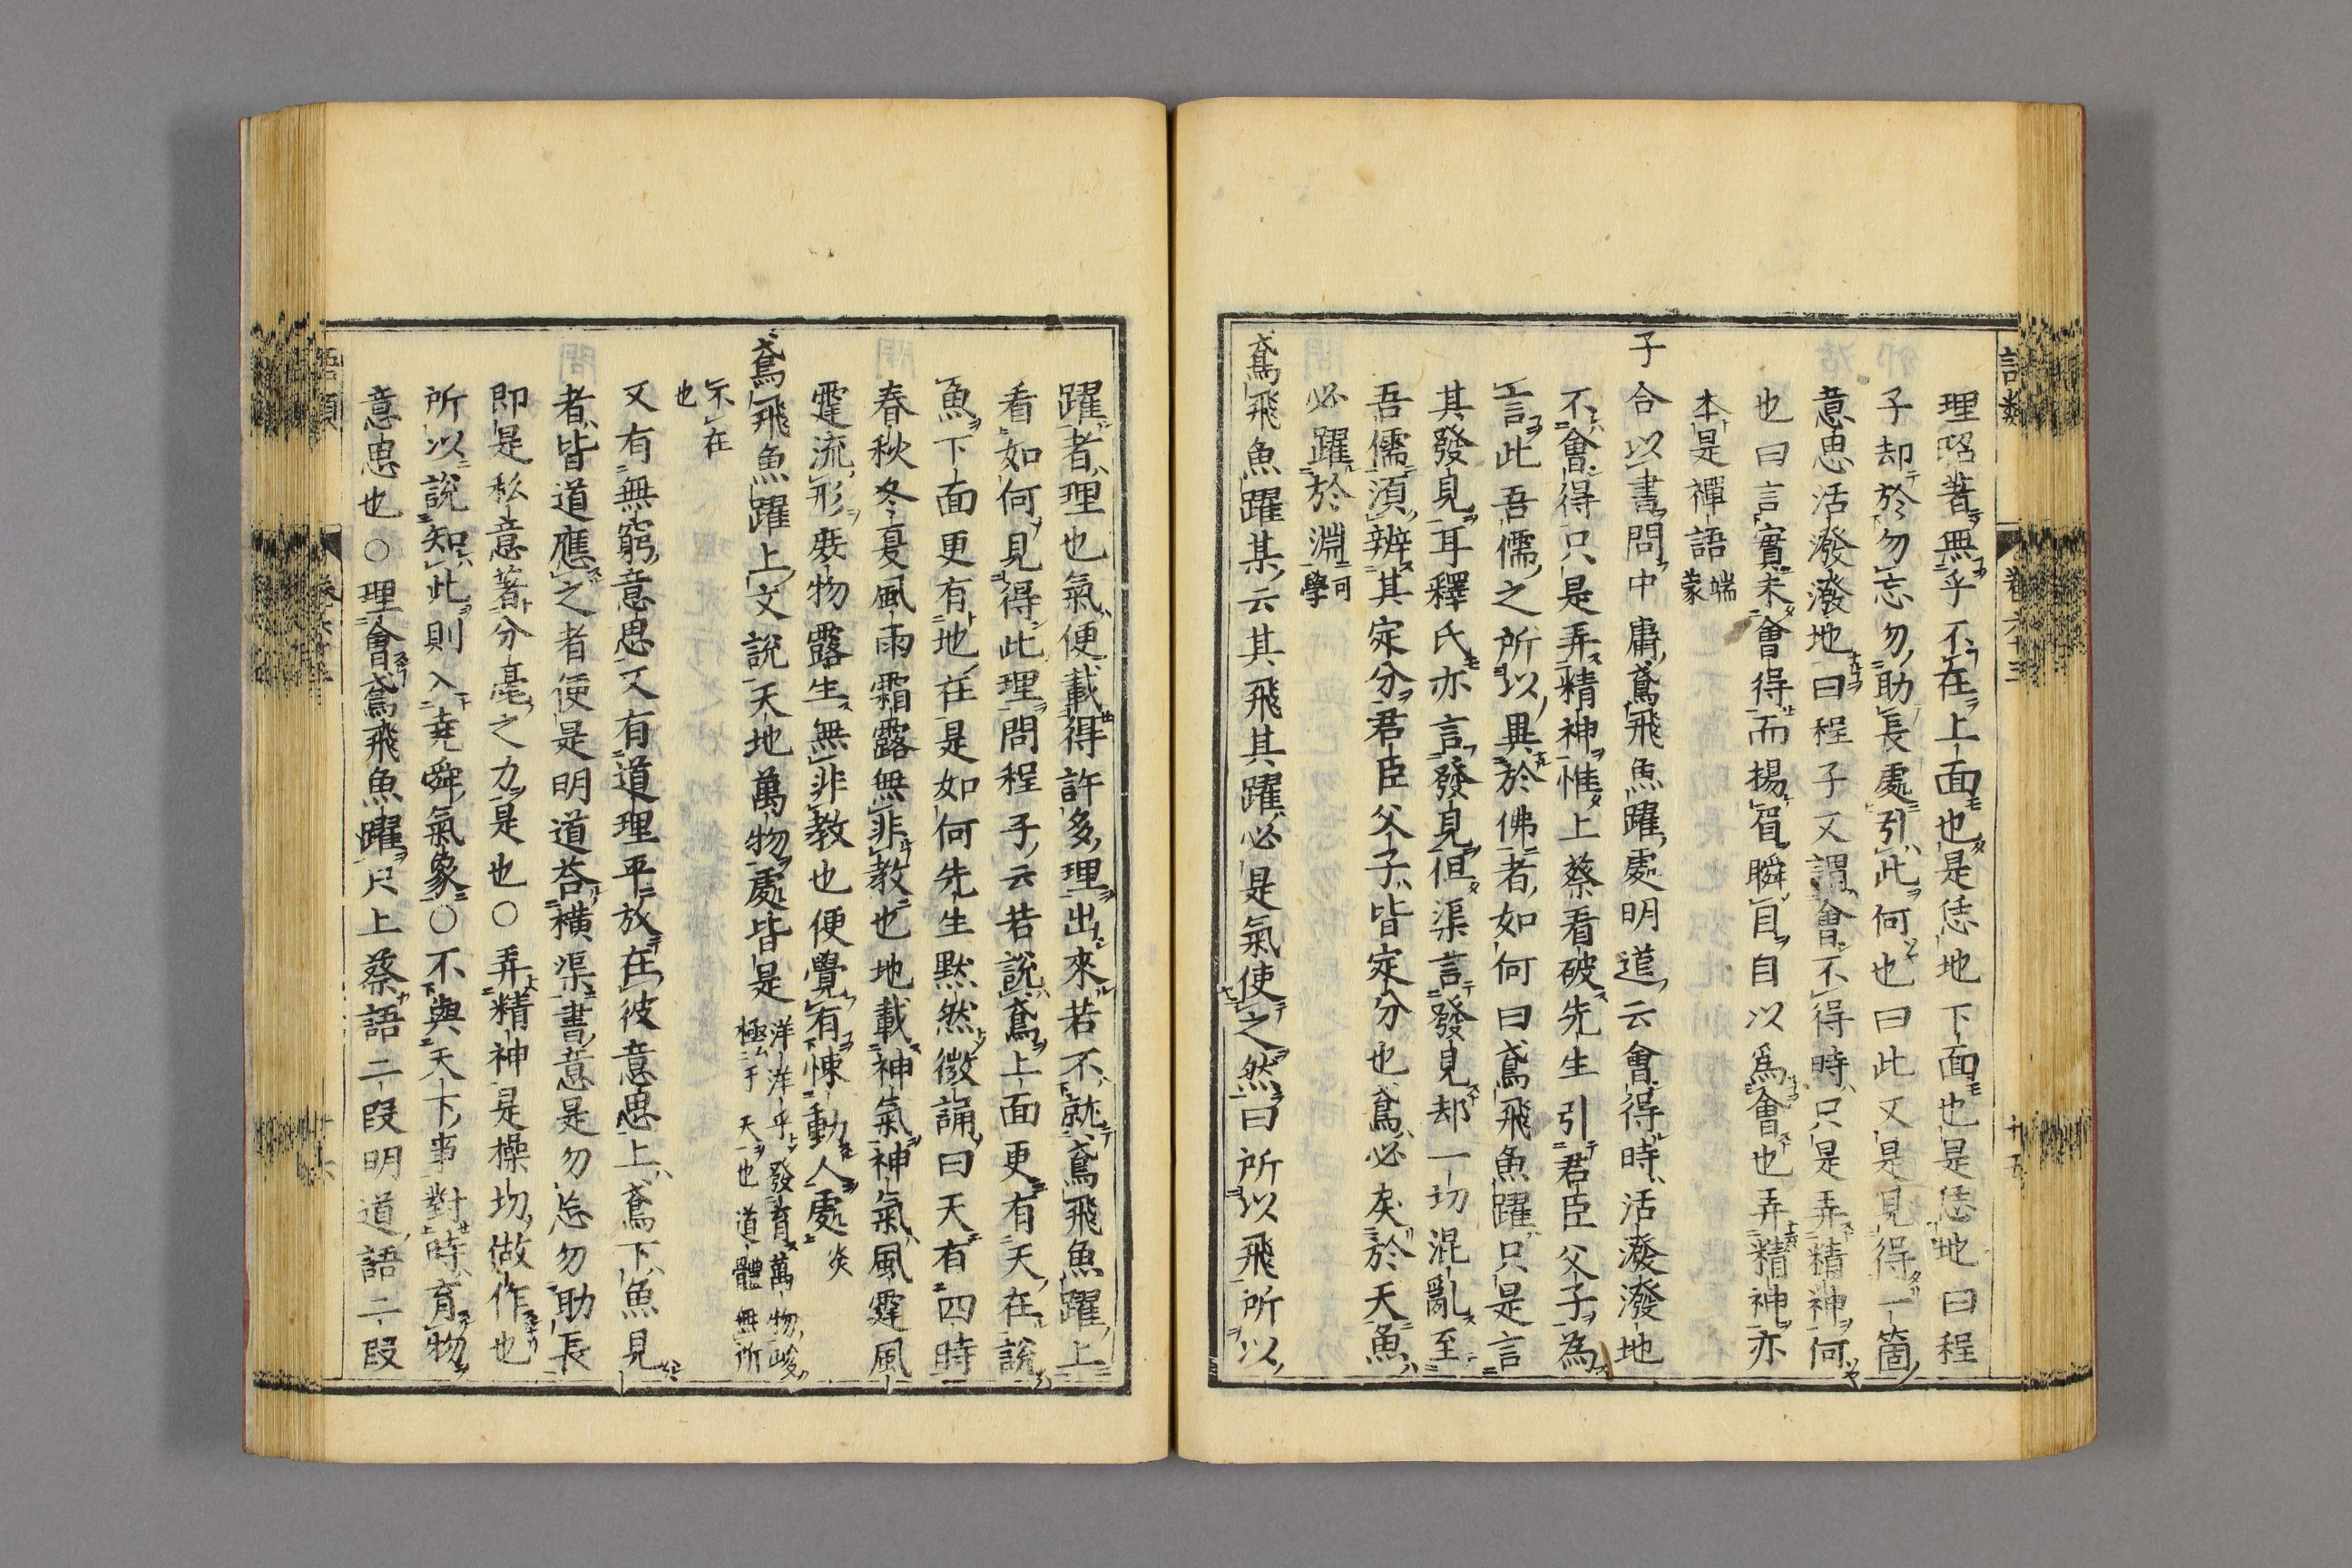 語類 卷六十三 十五
理昭著無乎不在上面也是恁地下面也是恁地曰程
子却於勿忘勿助長處引此何也曰此又是見得一箇
意思活潑潑地曰程子又謂會不得時只是弄精神何
也曰言實未會得而揚眉瞬目自以爲會也弄精神亦
本是禪語端蒙
子合以書問中庸鳶飛魚躍處明道云會得時活潑潑地
不會得只是弄精神惟上蔡看破先生引君臣父子為
言此吾儒之所以異於佛者如何曰鳶飛魚躍只是言
其發見耳釋氏亦言發見但渠言發見却一切混亂至
吾儒須辨其定分君臣父子皆定分也鳶必戾於天魚
必躍於淵可學
鳶飛魚躍某云其飛其躍必是氣使之然曰所以飛所以
躍者理也氣便載得許多理出來若不就鳶飛魚躍上
看如何見得此理問程子云若說鳶上面更有天在說
魚下面更有地在是如何先生默然微誦曰天有四時
春秋冬夏風雨霜露無非教也地載神氣神氣風霆風
霆流形庶物露生無非教也便覺有悚動人處炎
鳶飛魚躍上文說天地萬物處皆是洋洋乎發育萬物峻極于天也道體無所
不在也
又有無窮意思又有道理平放在彼意思上鳶下魚見
者皆道應之者便是明道荅橫渠書意是勿忘勿助長
即是私意著分毫之力是也○弄精神是操切做作也
所以說知此則入堯舜氣象○不與天下事對時育物
意思也○理會鳶飛魚躍只上蔡語二段明道語二段
語類